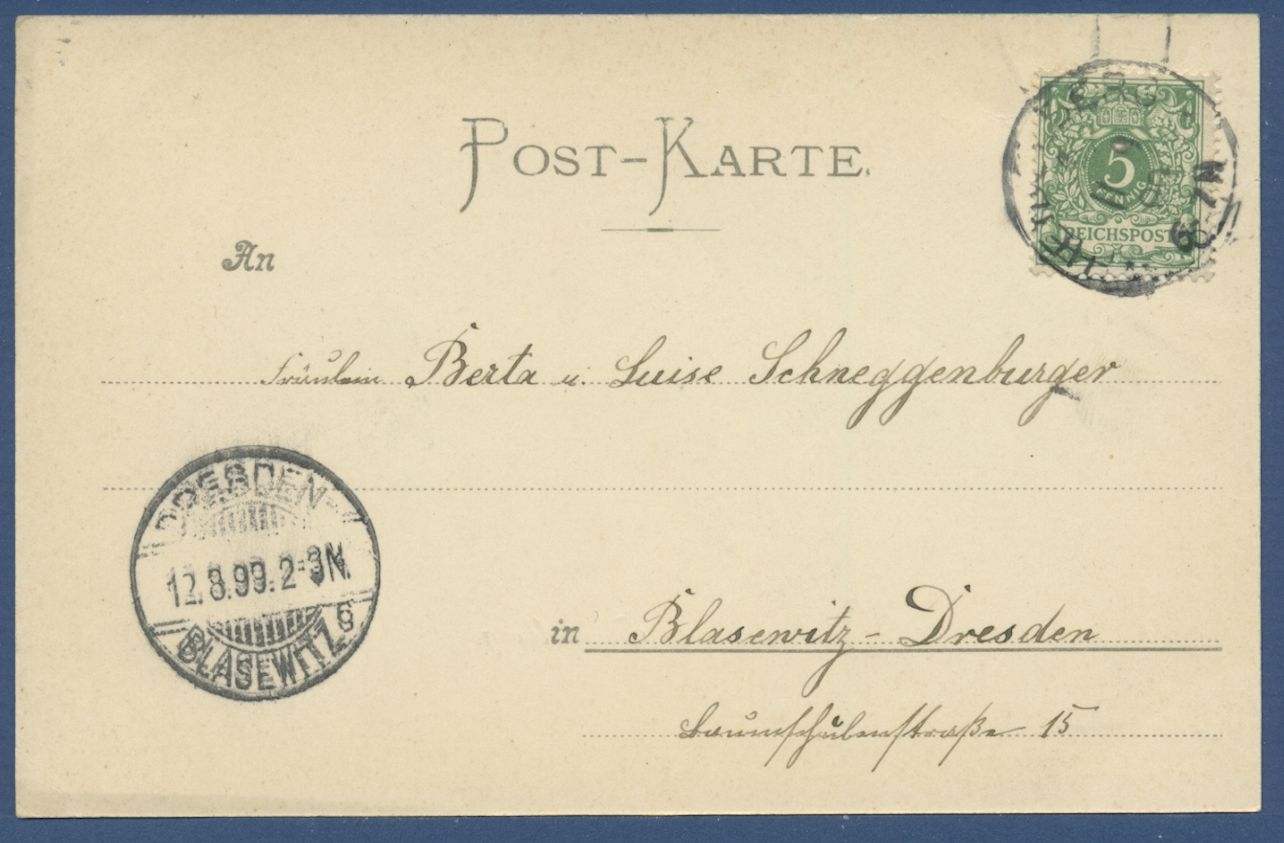 POST-KARTE.
5
REICHSPOST
6-7N
An
Fräulein Berta u. Luise Schneggenburger
DRESDEN-
12.8.99.2-3N.
BLASEWITZ
in Blasewitz - Dresden
Baumschulenstraße 15